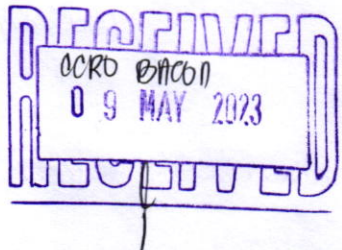 RECEIVED
CCRO BACON
0 9 MAY 2023